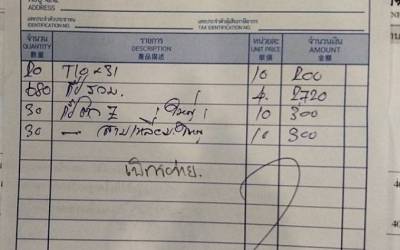 ADDRESS
เลขประจำตัวประชาชน
IDENTIFICATION NO.
เลขประจำตัวผู้เสียภาษีอากร
TAX IDENTIFICATION NO.
จำนวน รายการ หน่วยละ จำนวนเงิน
QUANTITY DESCRIPTION UNIT PRICE AMOUNT
數量 單價 金額
20 10 200
680 รวม. 4. 2720
30 7 ใหญ่ 10 300
30 — สามเหลี่ยม ใหญ่ 10 300
เบิกจ่าย.